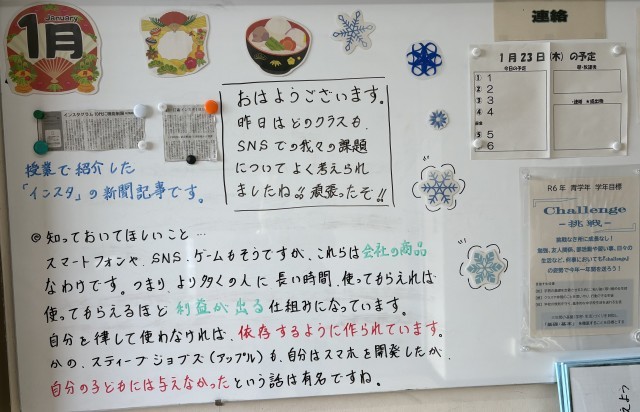 January
1月
連絡
1月23日(木)の予定
今日の予定
1
2
3
4
5
6
おはようございます。
昨日はどのクラスも、
SNSでの我々の課題
についてよく考えられ
ましたね!! 頑張ったぞ!!
授業で紹介した
「インスタ」の新聞記事です。
◎知っておいてほしいこと…
スマートフォンや、SNS、ゲームもそうですが、これらは会社の商品
なわけです。つまり、より多くの人に長い時間、使ってもらえれば
使ってもらえるほど利益が出る仕組みになっています。
自分を律して使わなければ、依存するように作られています。
かの、スティーブジョブズ(アップル)も、自分はスマホを開発したが、
自分の子どもには与えなかったという話は有名ですね。
R6年 青学年 学年目標
Challenge
-挑戦-